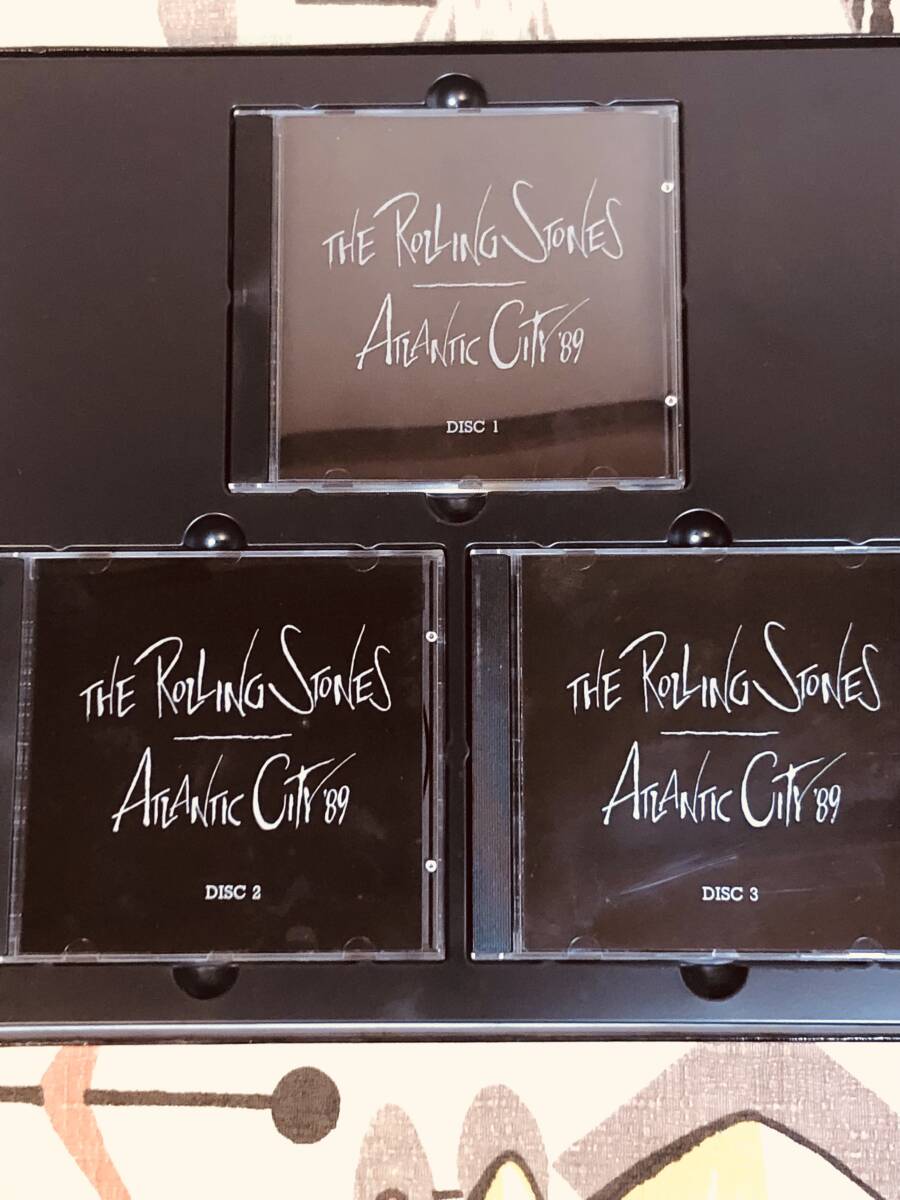 THE ROLLING STONES
ATLANTIC CITY '89
DISC 1
THE ROLLING STONES
ATLANTIC CITY '89
DISC 2
THE ROLLING STONES
ATLANTIC CITY '89
DISC 3